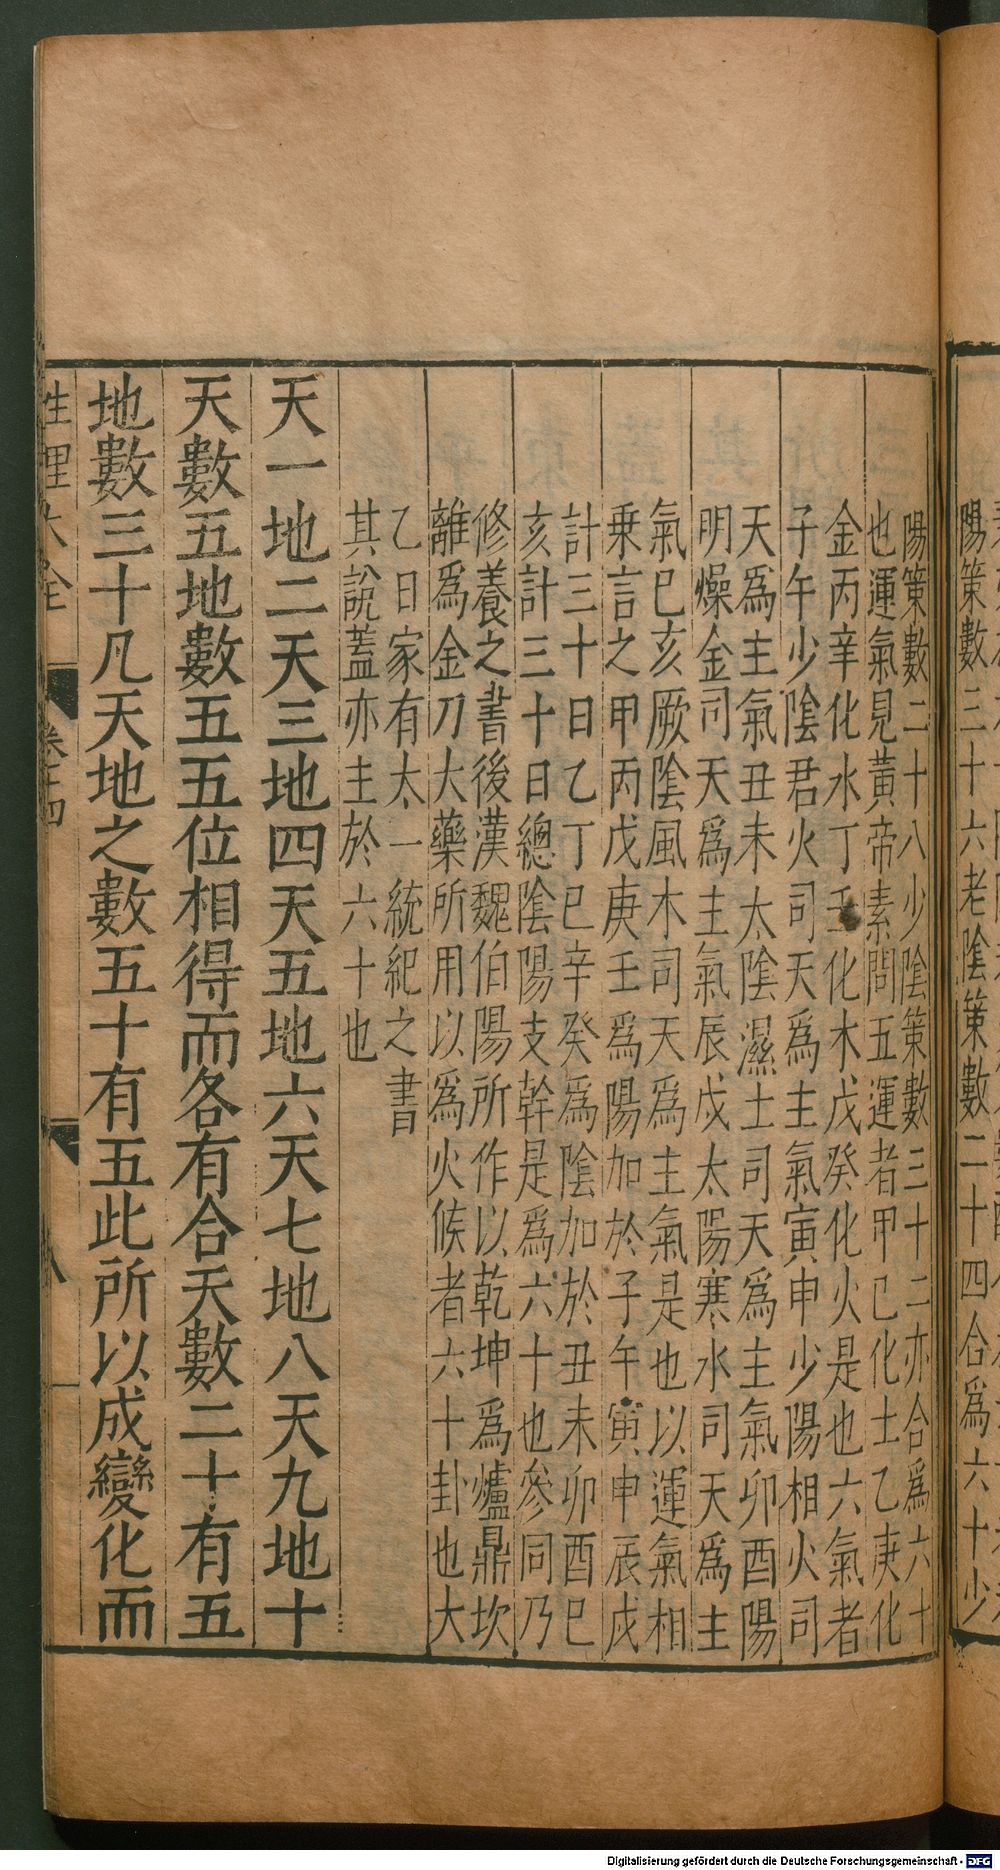 陽策數二十八少陰策數三十二亦合爲六十
也運氣見黃帝素問五運者甲己化土乙庚化
金丙辛化水丁壬化木戊癸化火是也六氣者
子午少陰君火司天爲主氣寅申少陽相火司
天爲主氣丑未太陰濕土司天爲主氣卯酉陽
明燥金司天爲主氣辰戌太陽寒水司天爲主
氣巳亥厥陰風木司天爲主氣是也以運氣相
乗言之甲丙戊庚壬爲陽加於子午寅申辰戌
計三十日乙丁巳辛癸爲陰加於丑未卯酉巳
亥計三十日總陰陽支幹是爲六十也參同乃
修養之書後漢魏伯陽所作以乾坤爲爐鼎坎
離爲金刀大藥所用以爲火候者六十卦也大
乙日家有太一統紀之書
其說蓋亦主於六十也
天一地二天三地四天五地六天七地八天九地十
天數五地數五五位相得而各有合天數二十有五
地數三十凡天地之數五十有五此所以成變化而
性理大全
卷十四
八
陽策數三十六老陰策數二十四合爲六十少
Digitalisierung gefördert durch die Deutsche Forschungsgemeinschaft - DFG